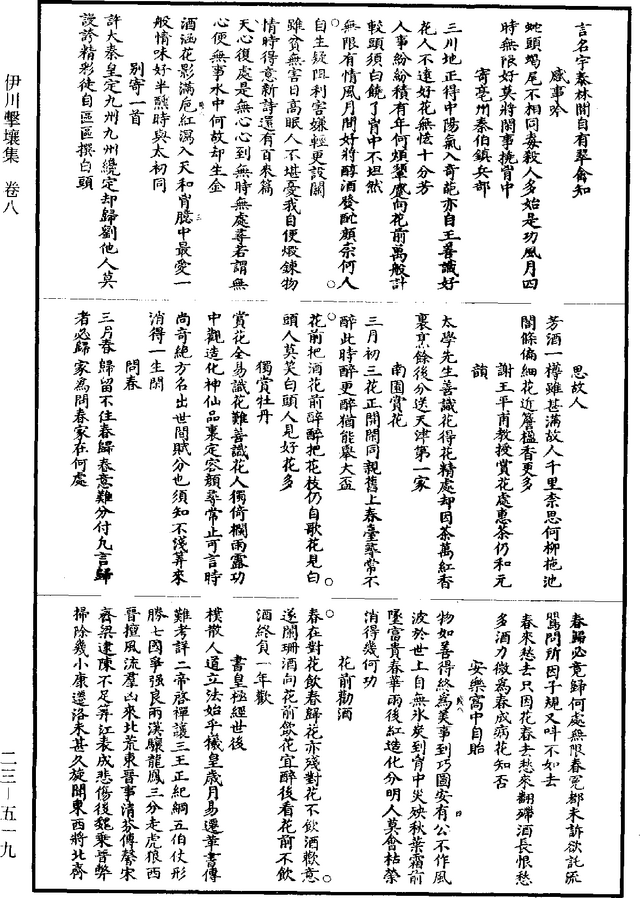 言名字泰林閒自有翠禽知
感事吟
蛇頭蝎尾不相同毒殺人多始是功風月四
時無限好莫將閑事撓胷中
寄亳州秦伯鎮兵部
三川地正得中陽氣入奇葩亦自王善識好
花人不遠好花無恡十分芳
人事紛紛積有年何煩顰蹙向花前萬般計
較頭須白饒了胷中不坦然
無限有情風月間好將醇酒發酡顏柰何人
自生疑阻利害嫌輕更設關
雖貧無害日高眠人不堪憂我自便煅鍊物
情時得意新詩還有百來篇
天心復處是無心心到無時無處尋若謂無
心便無事水中何故却生金
酒涵花影滿巵紅瀉入天和胷臆中最愛一
般情味好半醺時與太初同
別寄一首
許大秦皇定九州九州纔定却歸劉他人莫
謾誇精彩徒自區區撰白頭
思故人
芳酒一樽雖甚滿故人千里柰思何柳拖池
閣條偏細花近簷楹香更多
謝王平甫教授賞花處惠茶仍和元
韻
太學先生善識花得花精處却因茶萬紅香
裏烹餘後分送天津第一家
南園賞花
三月初三花正開閑同親舊上春臺尋常不
醉此時醉更醉猶能舉大盃
花前把酒花前醉醉把花枝仍自歌花見白
頭人莫笑白頭人見好花多
獨賞牡丹
賞花全易識花難善識花人獨倚欄雨露功
中觀造化神仙品裏定容顏尋常止可言時
尚奇絕方名出世間賦分也須知不淺筭來
消得一生閑
問春
三月春歸留不住春歸春意難分付凡言歸
者必歸家爲問春家在何處
春歸必竟歸何處無限春冤都未訴欲託流
鶯問所因子規又呌不如去
春來愁去只因花春去愁來翻殢酒長恨愁
多酒力微爲春成病花知否
安樂窩中自貽
物如善得終爲美事到巧圖安有公不作風
波於世上自無氷炭到胷中災殃秋葉霜前
墜富貴春華雨後紅造化分明人莫會枯榮
消得幾何功
花前勸酒
春在對花飲春歸花亦殘對花不飲酒歡意
遂闌珊酒向花前飲花宜醉後看花前不飲
酒終負一年歡
書皇極經世後
樸散人道立法始乎犧皇歲月易遷革書傳
難考詳二帝啓禪讓三王正紀綱五伯仗形
勝七國爭强良兩漢驤龍鳳三分走虎狼西
晉擅風流羣凶來北荒東晉事清芬傳馨宋
齊梁逮陳不足筭江表成悲傷後魏乘晉弊
掃除幾小康遷洛未甚久旋聞東西將北齊
伊川擊壤集 卷八
二三—五一九